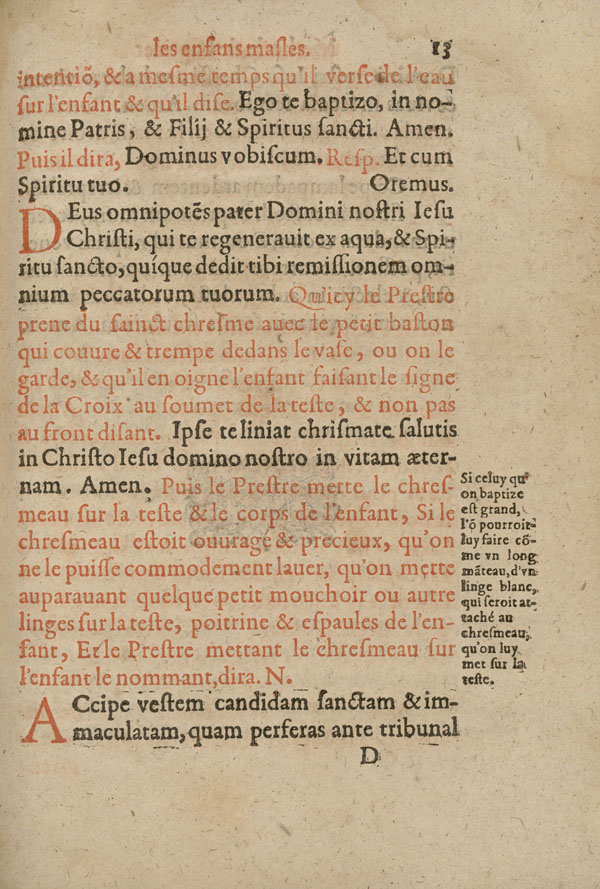 les enfans masles. 13
intentiõ, & a mesme temps qu'il verse de l'eau
sur l'enfant & qu'il dise. Ego te baptizo, in no-
mine Patris, & Filij & Spiritus sancti. Amen.
Puis il dira, Dominus vobiscum. Resp. Et cum
Spiritu tuo. Oremus.
DEus omnipotẽs pater Domini nostri Iesu
Christi, qui te regenerauit ex aqua, & Spi-
ritu sancto, quíque dedit tibi remissionem om-
nium peccatorum tuorum. Qu'icy le Prestre
prene du sainct chresme auec le petit baston
qui couure & trempe dedans le vase, ou on le
garde, & qu'il en oigne l'enfant faisant le signe
de la Croix au soumet de la teste, & non pas
au front disant. Ipse te liniat chrismate salutis
in Christo Iesu domino nostro in vitam æter-
nam. Amen. Puis le Prestre mette le chres-
meau sur la teste & le corps de l'enfant, Si le
chresmeau estoit ouuragé & precieux, qu'on
ne le puisse commodement lauer, qu'on mette
auparauant quelque petit mouchoir ou autre
linges sur la teste, poitrine & espaules de l'en-
fant, Et le Prestre mettant le chresmeau sur
l'enfant le nommant, dira. N.
ACcipe vestem candidam sanctam & im-
maculatam, quam perferas ante tribunal
D
Si celuy qu'
on baptize
est grand,
l'õ pourroit
luy faire cõ-
me vn long
mãteau, d'vn
linge blanc,
qui seroit at-
taché au
chresmeau,
qu'on luy
met sur la
teste.